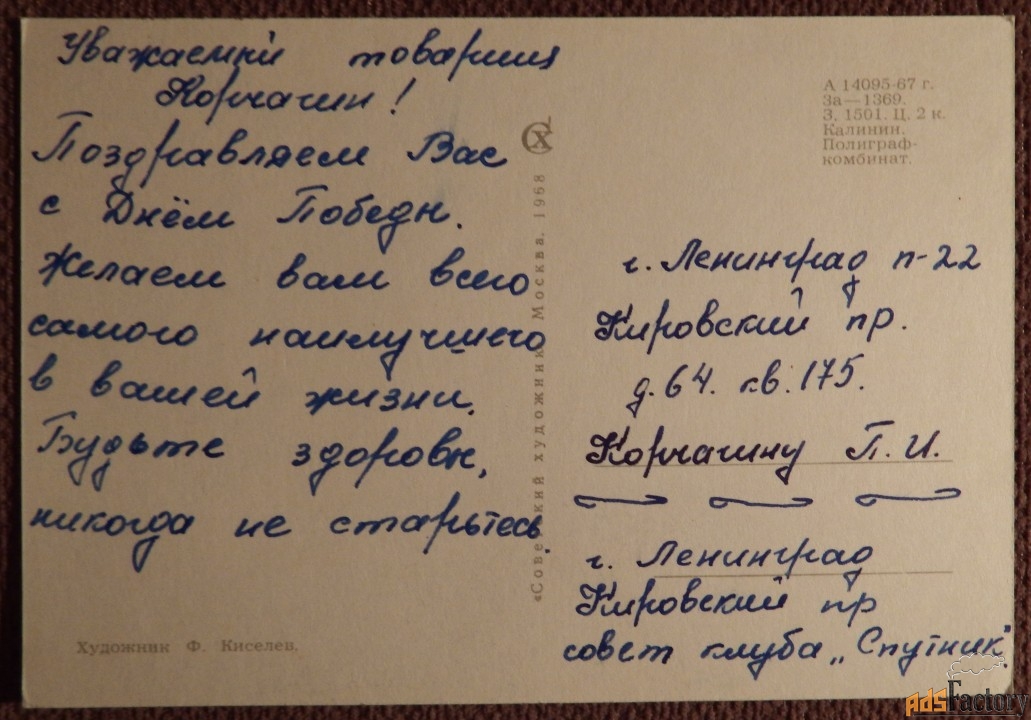 Уважаемый товарищ
Корчагин!
Поздравляем Вас
с Днём Победы.
Желаем вам всего
самого наилучшего
в вашей жизни.
Будьте здоровы,
никогда не старьтесь.
Художник Ф. Киселев.
«Советский художник» Москва. 1968
СХ
А 14095-67 г.
За—1369.
З. 1501. Ц. 2 к.
Калинин.
Полиграф-
комбинат.
г. Ленинград п-22
Кировский пр.
д. 64. кв. 175.
Корчагину П. И.
г. Ленинград
Кировский пр
совет клуба „Спутник".
AdsFactory